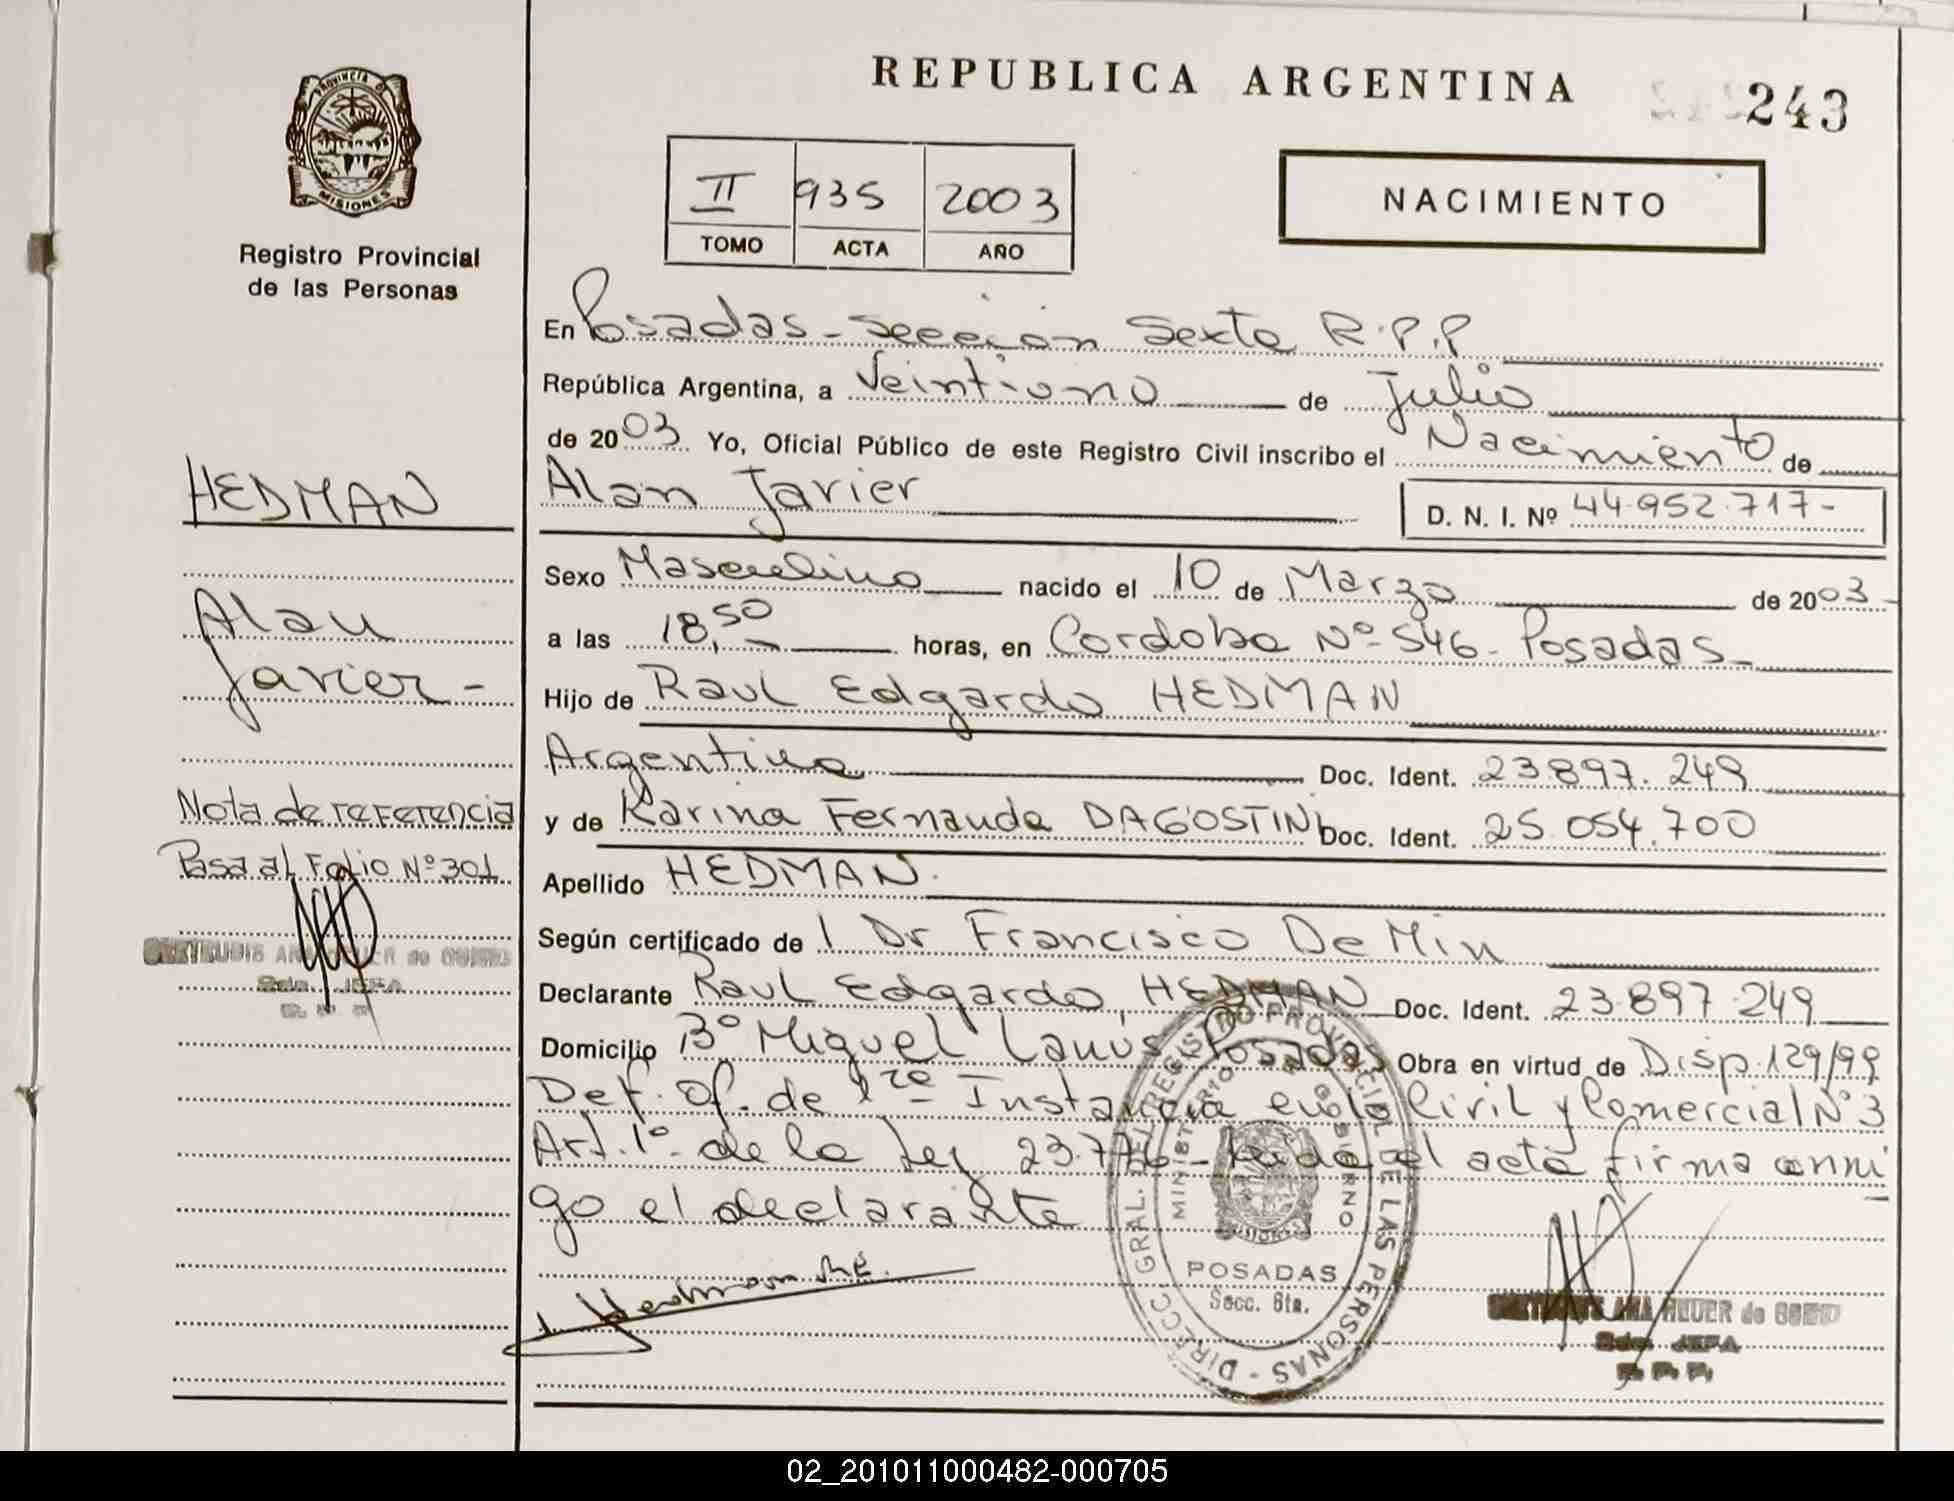 REPUBLICA ARGENTINA
243
PROVINCIA DE
MISIONES
Registro Provincial
de las Personas
II 935 2003
TOMO ACTA AÑO
NACIMIENTO
En Posadas - Sección Sexta R.P.P
República Argentina, a Veintiuno de Julio
de 2003 Yo, Oficial Público de este Registro Civil inscribo el Nacimiento de
Alan Javier D. N. I. Nº 44.952.717-
Sexo Masculino nacido el 10 de Marzo de 2003-
a las 18,50 horas, en Cordoba Nº 546- Posadas-
Hijo de Raul Edgardo HEDMAN
Argentino Doc. Ident. 23.897.249
y de Karina Fernanda DAGOSTINI Doc. Ident. 25.054.700
Apellido HEDMAN.
Según certificado de Dr Francisco De Min
Declarante Raul Edgardo HEDMAN Doc. Ident. 23.897.249
Domicilio Bº Miguel Lanús Posadas Obra en virtud de Disp. 129/99
Def. Of. de 1ra Instancia en lo Civil y Comercial Nº 3
Art. 1º de la Ley 23.776 - Leida el acta firma conmi
go el declarante
HEDMAN
Alan
Javier-
Nota de referencia
Pasa al Folio Nº 301
ANA HEUER de
Sdn. JEFA
R P P
DIRECC. GRAL. DEL REGISTRO PROVINCIAL DE LAS PERSONAS -
MINISTERIO DE GOBIERNO
MISIONES
POSADAS
Secc. 6ta.
ANA HEUER de
Sdn. JEFA
R P P
02_201011000482-000705